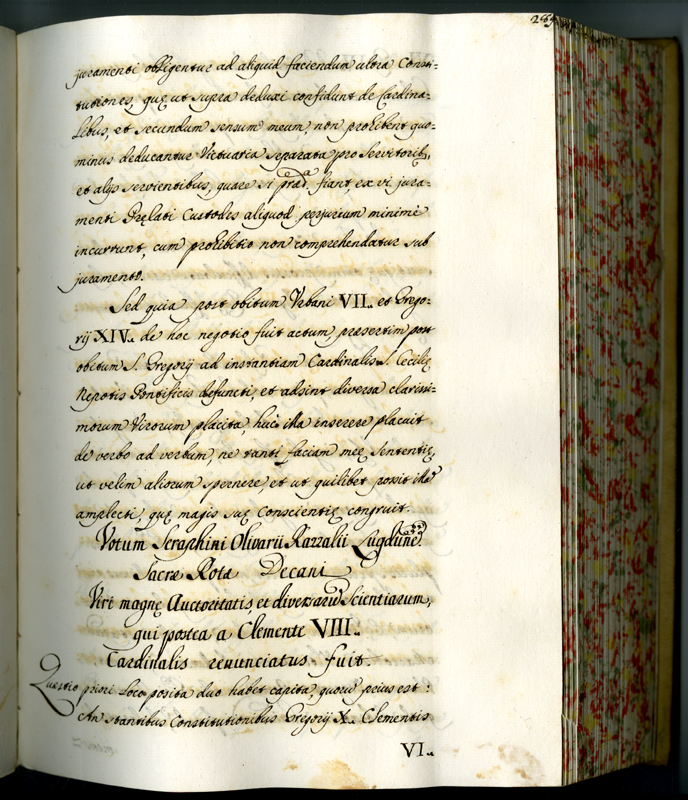 289
juramenti obligentur ad aliquid faciendum ultra Consti-
tutiones, quę ut supra deduxi confidunt de Cardina-
libus, et secundum sensum meum, non prohibent quo-
minus deducantur Victuaria separata pro Servitorib,
et alijs servientibus, quare si prad.ᵉᵃ fiant, ex vi jura-
menti Pręlati Custodes aliquod perjurium minimè
incurrunt, cum prohibitio non comprehendatur sub
juramento.
Sed quia post obitum Urbani VII.. et Grego-
rij XIV.. de hoc negotio fuit actum, presertim post
obitum S. Gregorij ad instantiam Cardinalis S. Cecilię
Nepotis Pontificis defuncti, et adsint diversa clarissi-
morum Virorum placita, huic illa inserere placuit
de verbo ad verbum, ne tanti faciam meę Sententię,
ut velim aliorum spernere, et ut quilibet possit illa
amplecti, quę magis suę Conscientię congruit.
Votum Seraphini Olivarii Razzalii Lugdunē
Sacræ Rotæ Decani
Viri magnę Auctoritatis, et diversarū Scientiarum,
qui postea a Clemente VIII..
Cardinalis renunciatus fuit.
Quęstio priori loco posita duo habet capita, quorū prius est:
An stantibus Constitutionibus Gregorij X.. Clementis
VI..